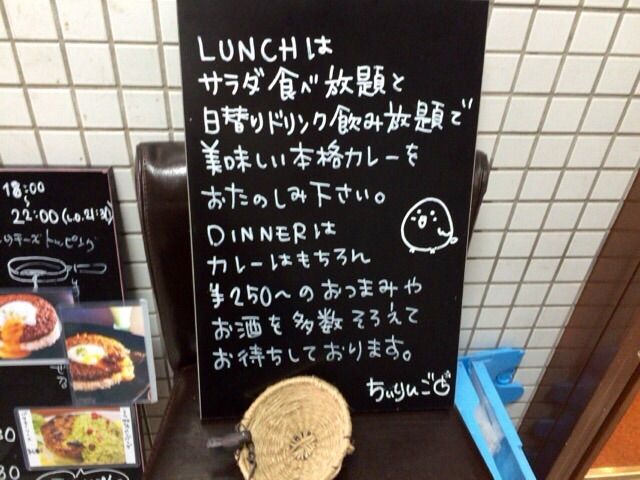 LUNCHは
サラダ食べ放題と
日替りドリンク飲み放題で
美味しい本格カレーを
おたのしみ下さい。
DINNERは
カレーはもちろん
¥250〜のおつまみや
お酒を多数そろえて
お待ちしております。
ちぃりんご
18:00
〜
22:00(L.O.21:30)
チーズトッピング